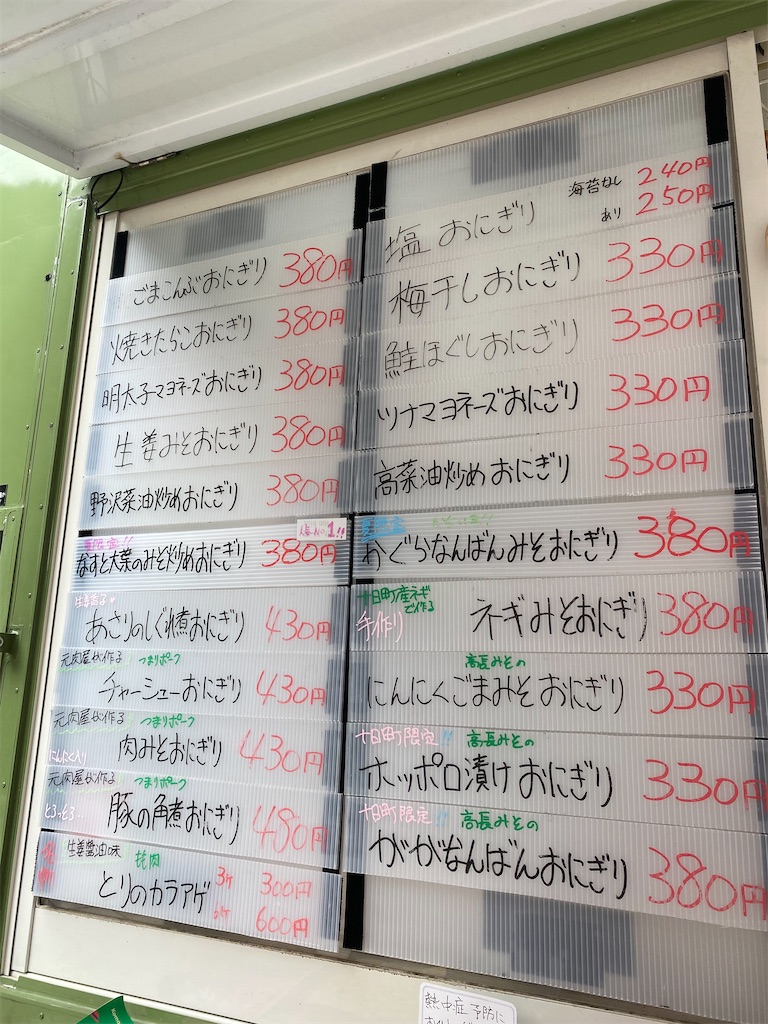 塩 おにぎり 海苔なし 240円
あり 250円
梅干しおにぎり 330円
鮭ほぐしおにぎり 330円
ツナマヨネーズおにぎり 330円
高菜油炒めおにぎり 330円
かぐらなんばんみそおにぎり 380円
十日町産ネギで作る
手作り ネギみそおにぎり 380円
高長みその
にんにくごまみそおにぎり 330円
十日町限定!! 高長みその
ホッポロ漬けおにぎり 330円
十日町限定!! 高長みその
ががなんばんおにぎり 380円
ごまこんぶおにぎり 380円
焼きたらこおにぎり 380円
明太子マヨネーズおにぎり 380円
生姜みそおにぎり 380円
野沢菜油炒めおにぎり 380円
人気No.1!!
なすと大葉のみそ炒めおにぎり 380円
あさりのしぐれ煮おにぎり 430円
元肉屋が作る つまりポーク
チャーシューおにぎり 430円
元肉屋が作る つまりポーク
にんにく入り 肉みそおにぎり 430円
元肉屋が作る つまりポーク
とろ〜とろ 豚の角煮おにぎり 480円
生姜醤油味
とりのカラアゲ 3ケ 300円
600円
熱中症予防に